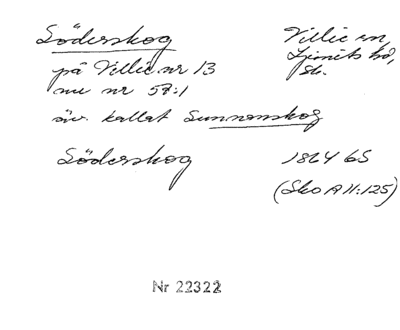 Söderskog
Villie sn,
Ljunits hd,
Sk.
på Villie nr 13
nu nr 58:1
äv. kallat Sunnanskog
Söderskog
1864 GS
(Sko A II:125)
Nr 22322